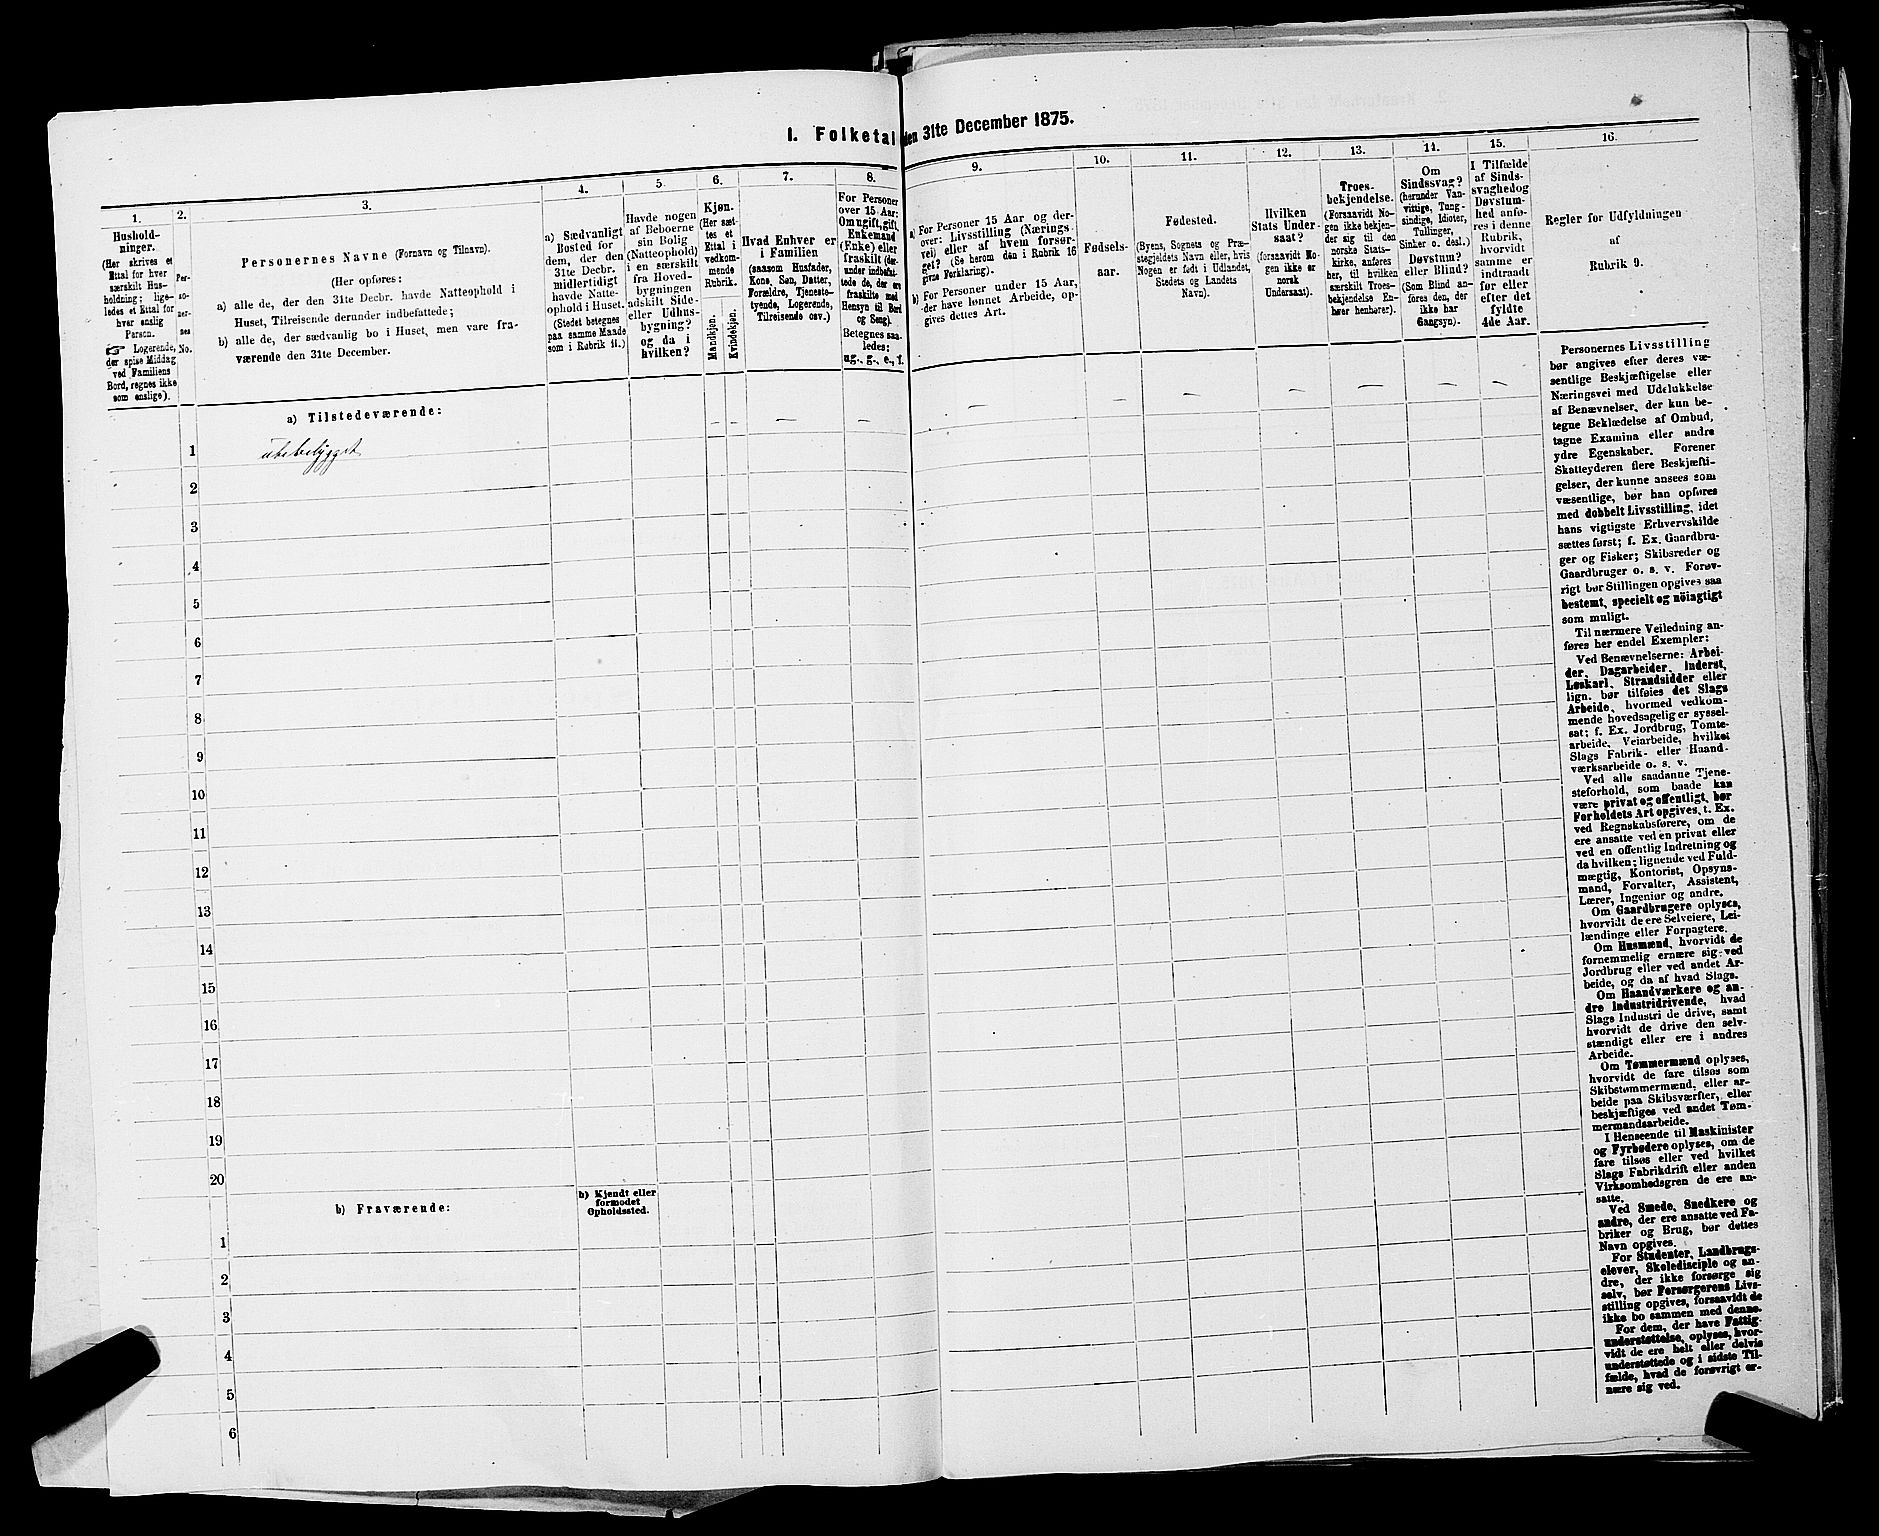 I. Folketal den 31te December 1875.
1.
Hushold-
ninger.
(Her skrives et
Ettal for hver
særskilt Hus-
holdning; lige-
ledes et Ettal for
hver enslig
Person.
☞ Logerende,
der spise Middag
ved Familiens
Bord, regnes ikke
som enslige).
2.
Per-
so-
ner-
nes
No.
3.
Personernes Navne (Fornavn og Tilnavn).
(Her opføres:
a) alle de, der den 31te Decbr. havde Natteophold i
Huset, Tilreisende derunder indbefattede;
b) alle de, der sædvanlig bo i Huset, men vare fra-
værende den 31te December.
4.
a) Sædvanligt
Bosted for
dem, der den
31te Decbr.
midlertidigt
havde Natte-
ophold i Huset.
(Stedet betegnes
paa samme Maade
som i Rubrik 11.)
5.
Havde nogen
af Beboerne
sin Bolig
(Natteophold)
i en særskilt
fra Hoved-
bygningen
adskilt Side-
eller Udhus-
bygning?
og da i
hvilken?
6.
Kjøn.
(Her sæt-
tes et
Ettal i
vedkom-
mende
Rubrik.)
Mandkjøn.
Kvindekjøn.
7.
Hvad Enhver er
i Familien
(saasom Husfader,
Kone, Søn, Datter,
Forældre, Tjeneste-
tyende, Logerende,
Tilreisende osv.)
8.
For Personer
over 15 Aar:
Om ugift, gift,
Enkemand
(Enke) eller
fraskilt (der-
under indbefat-
tede de, der ere
fraskilte med
Hensyn til Bord
og Seng).
Betegnes saa-
ledes:
ug., g., e., f.
9.
a) For Personer 15 Aar og der-
over: Livsstilling (Nærings-
vei) eller af hvem forsør-
get? (Se herom den i Rubrik 16
givne Forklaring).
b) For Personer under 15 Aar,
der have lønnet Arbeide, op-
gives dettes Art.
10.
Fødsels-
aar.
11.
Fødested.
(Byens, Sognets og Præ-
stegjeldets Navn eller, hvis
Nogen er født i Udlandet,
Stedets og Landets
Navn).
12.
Hvilken
Stats Under-
saat?
(forsaavidt No-
gen ikke er
norsk
Undersaat).
13.
Troes-
bekjendelse.
(Forsaavidt No-
gen ikke bekjen-
der sig til den
norske Stats-
kirke, anføres
her, til hvilken
særskilt Troes-
bekjendelse En-
hver henhører).
14.
Om
Sindssvag?
(herunder Van-
vittige, Tung-
sindige, Idioter,
Tullinger,
Sinker o. desl.)
Døvstum?
eller Blind?
(Som Blind an-
føres den, der
ikke har
Gangsyn).
15.
I Tilfælde
af Sinds-
svaghed og
Døvstum-
hed anfø-
res i denne
Rubrik,
hvorvidt
samme er
indtraadt
før eller
efter det
fyldte
4de Aar.
16.
Regler for Udfyldningen
af
Rubrik 9.
a) Tilstedeværende:
1 ubebygget
2
3
4
5
6
7
8
9
10
11
12
13
14
15
16
17
18
19
20
b) Fraværende:
b) Kjendt eller
formodet
Opholdssted.
1
2
3
4
5
6
Personernes Livsstilling
bør angives efter deres væ-
sentlige Beskjæftigelse eller
Næringsvei med Udelukkelse
af Benævnelser, der kun be-
tegne Beklædelse af Ombud,
tagne Examina eller andre
ydre Egenskaber. Forener
Skatteyderen flere Beskjæfti-
gelser, der kunne ansees som
væsentlige, bør han opføres
med dobbelt Livsstilling, idet
hans vigtigste Erhvervskilde
sættes først; f. Ex. Gaardbru-
ger og Fisker; Skibsreder og
Gaardbruger o. s. v. Forøv-
rigt bør Stillingen opgives saa
bestemt, specielt og nöiagtigt
som muligt.
Til nærmere Veiledning an-
føres her endel Exempler:
Ved Benævnelserne: Arbei-
der, Dagarbeider, Inderst,
Løskarl, Strandsidder eller
lign. bør tilføies det Slags
Arbeide, hvormed vedkom-
mende hovedsagelig er syssel-
sat; f. Ex. Jordbrug, Tomte-
arbeide, Veiarbeide, hvilket
Slags Fabrik- eller Haand-
værksarbeide o. s. v.
Ved alle saadanne Tjene-
steforhold, som baade kan
være privat og offentligt, bør
Forholdets Art opgives, t. Ex.
ved Regnskabsførere, om de
ere ansatte ved en privat eller
ved en offentlig Indretning og
da hvilken; lignende ved Fuld-
mægtig, Kontorist, Opsyns-
mand, Forvalter, Assistent,
Lærer, Ingeniør og andre.
Om Gaardbrugere oplyses,
hvorvidt de ere Selveiere, Lei-
lændinge eller Forpagtere.
Om Husmænd, hvorvidt de
fornemmelig ernære sig ved
Jordbrug eller ved andet Ar-
beide, og da af hvad Slags.
Om Haandværkere og an-
dre Industridrivende, hvad
Slags Industri de drive, samt
hvorvidt de drive den selv-
stændigt eller ere i andres
Arbeide.
Om Tømmermænd oplyses,
hvorvidt de fare tilsøs som
Skibstømmermænd, eller ar-
beide paa Skibsværfter, eller
beskjæftiges ved andet Tøm-
mermandsarbeide.
I Henseende til Maskinister
og Fyrbødere oplyses, om de
fare tilsøs eller ved hvilket
Slags Fabrikdrift eller anden
Virksomhedsgren de ere an-
satte.
Ved Smede, Snedkere og
andre, der ere ansatte ved Fa-
briker og Brug, bør dettes
Navn opgives.
For Studenter, Landbrugs-
elever, Skoledisciple og an-
dre, der ikke forsørge sig
selv, bør Forsørgerens Livs-
stilling opgives, forsaavidt de
ikke bo sammen med denne.
For dem, der have Fattig-
understøttelse, oplyses, hvor-
vidt de ere helt eller delvis
understøttede og i sidste Til-
fælde, hvad de forøvrigt er-
nære sig ved.